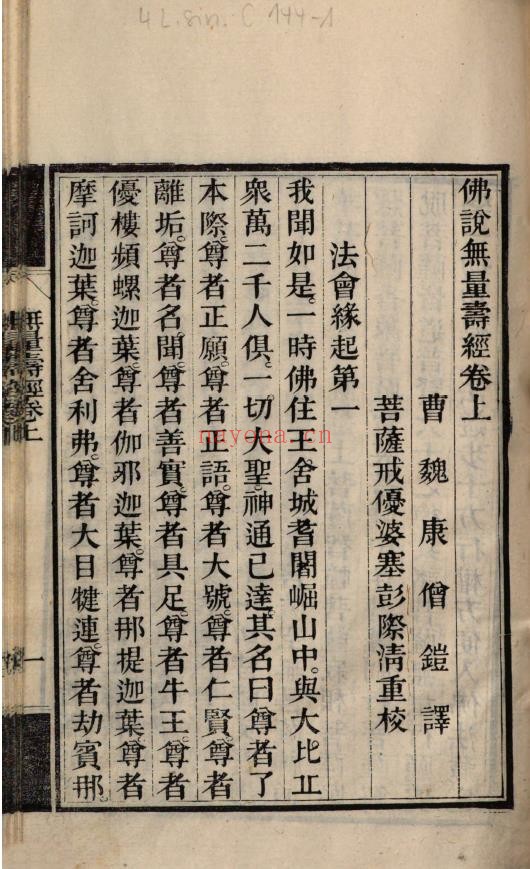 4 L. sin. C 144-1
佛說無量壽經卷上
曹魏康僧鎧譯
菩薩戒優婆塞彭際淸重校
法會緣起第一
我聞如是。一時佛住王舍城耆闍崛山中。與大比丘
衆萬二千人俱。一切大聖神通已達。其名曰尊者了
本際。尊者正願。尊者正語。尊者大號。尊者仁賢。尊者
離垢。尊者名聞。尊者善實。尊者具足。尊者牛王。尊者
優樓頻螺迦葉。尊者伽邪迦葉。尊者那提迦葉。尊者
摩訶迦葉。尊者舍利弗。尊者大目犍連。尊者劫賓那。
無量壽經卷上
一
nayona.cn